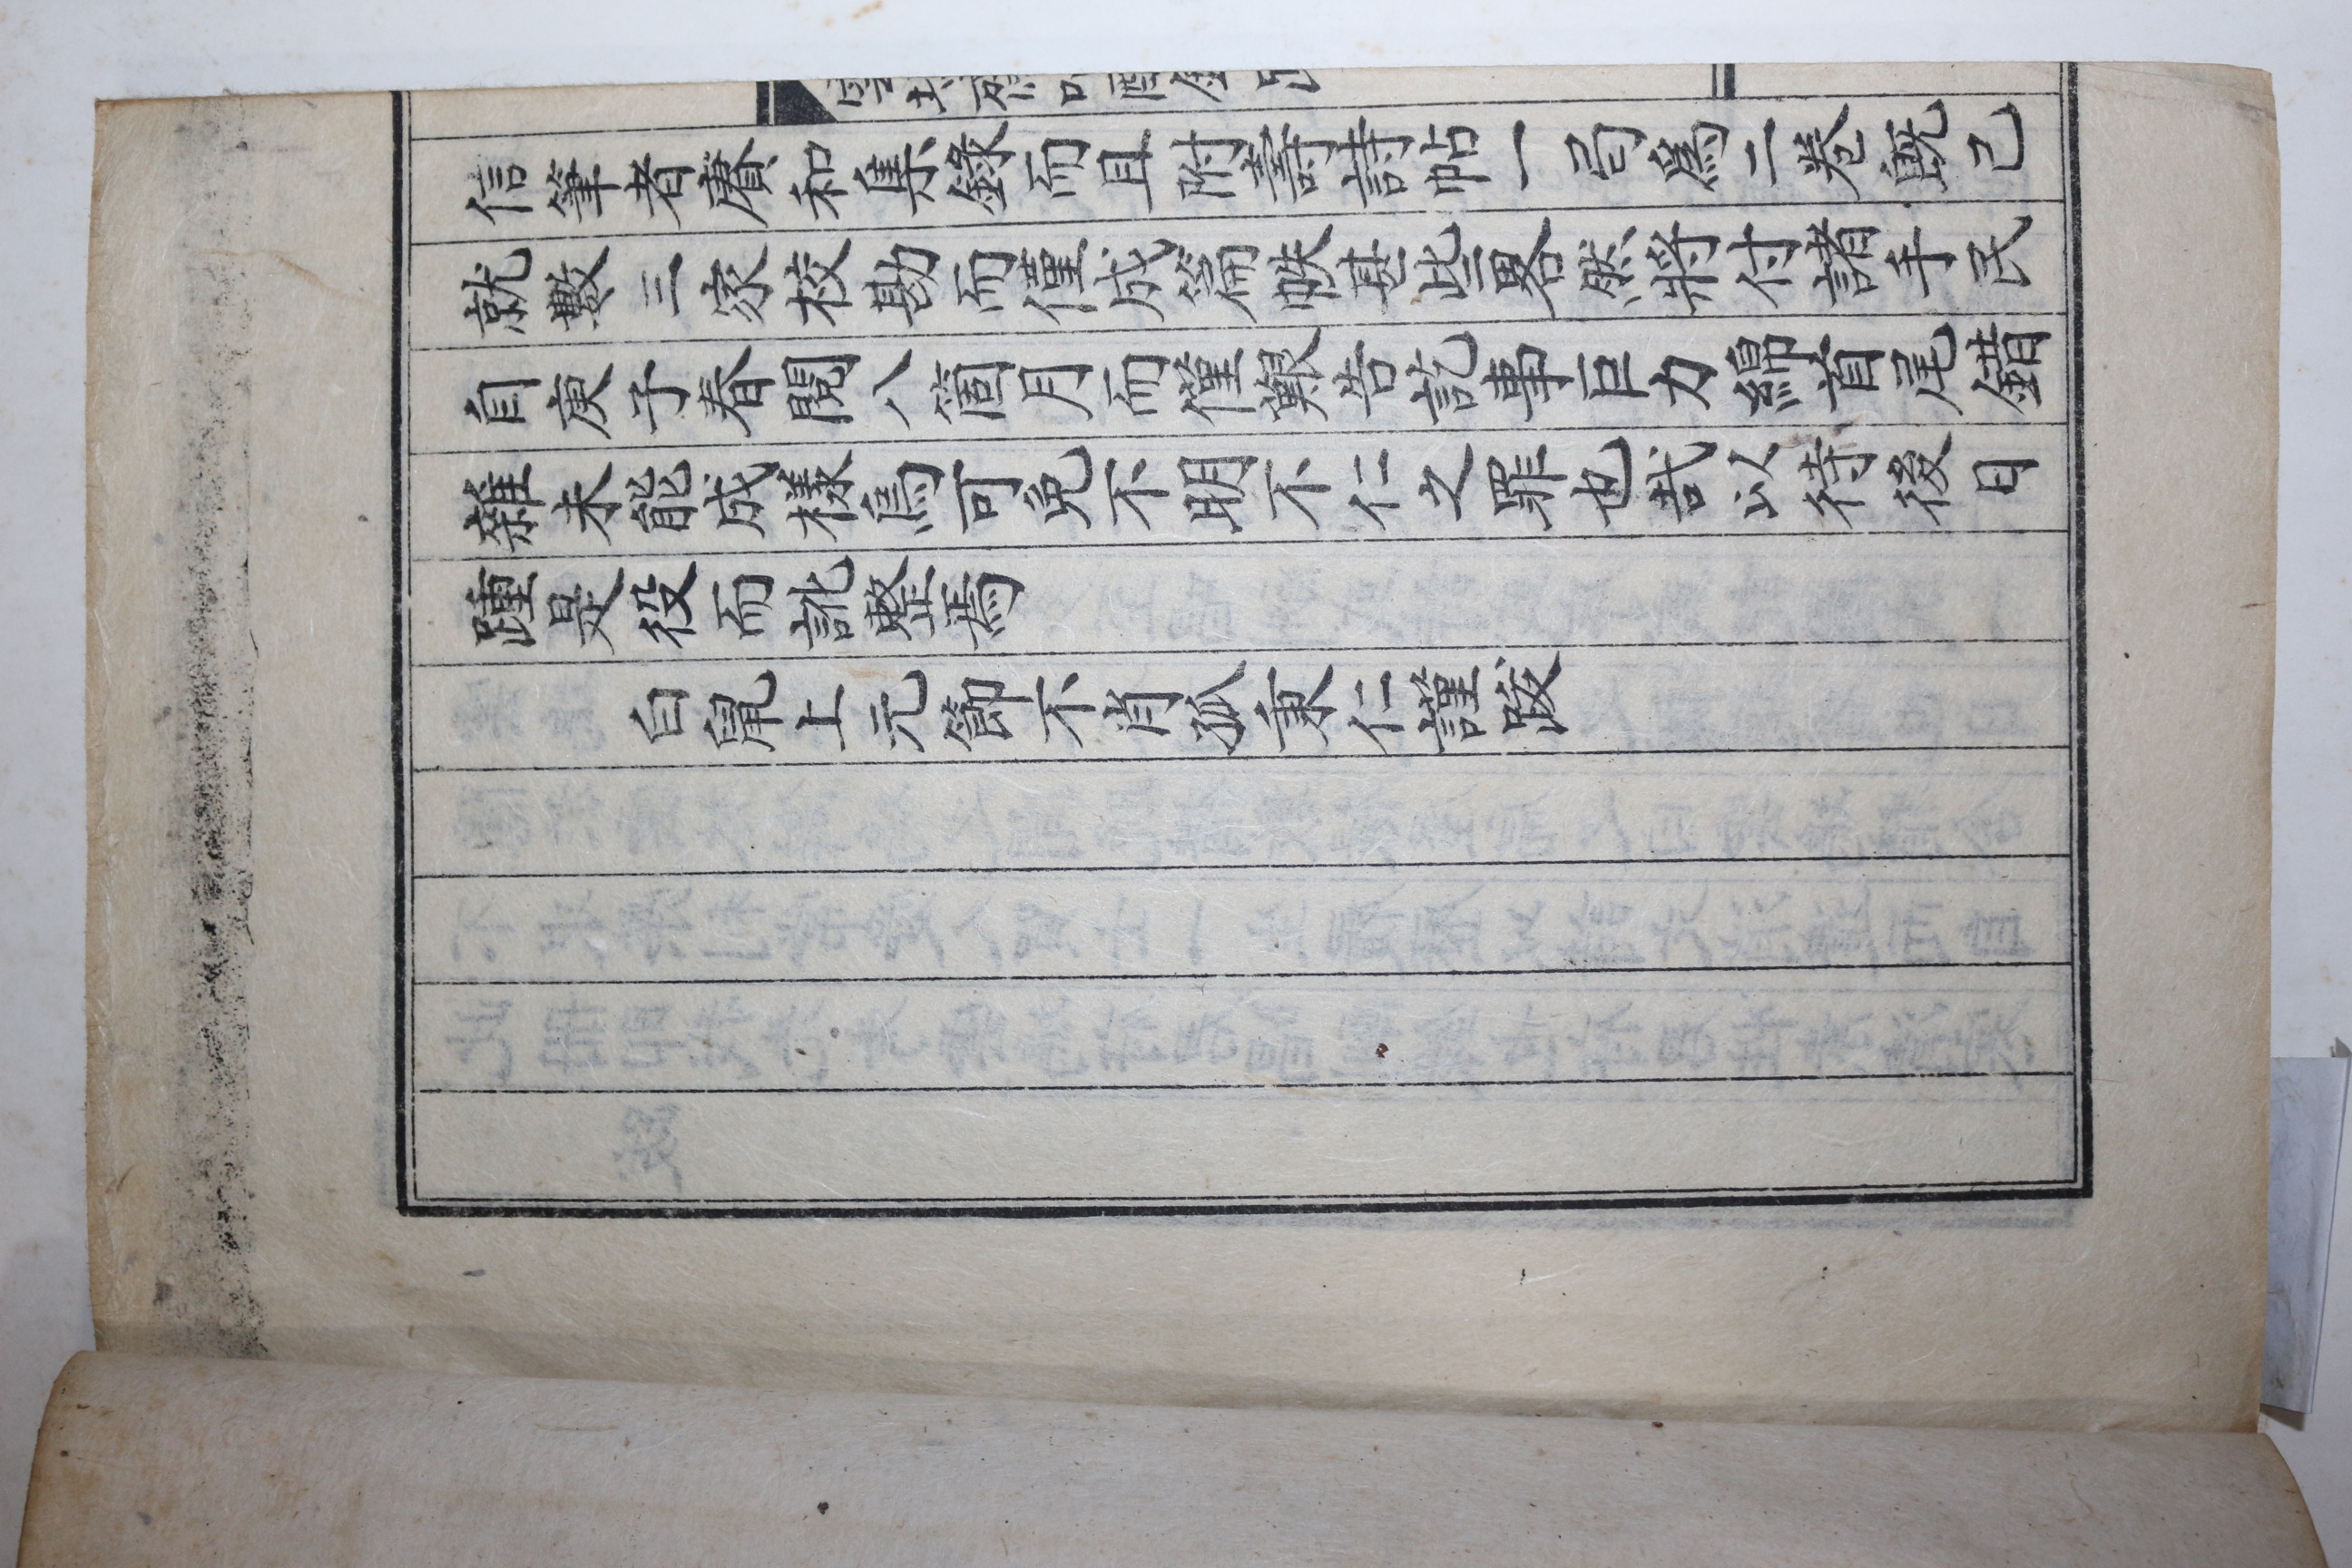 信筆者賡和集錄而且附壽詩帖一局爲二卷既己
就數三家校勘而僅成篇帙甚些畧然將付諸手民
自庚子春閱八箇月而僅艱告訖事巨力綿首尾錯
雜未能成樣烏可免不明不仁之罪也哉以待後日
踵是役而訛整焉
白鼠上元節不肖孤秉仁謹跋